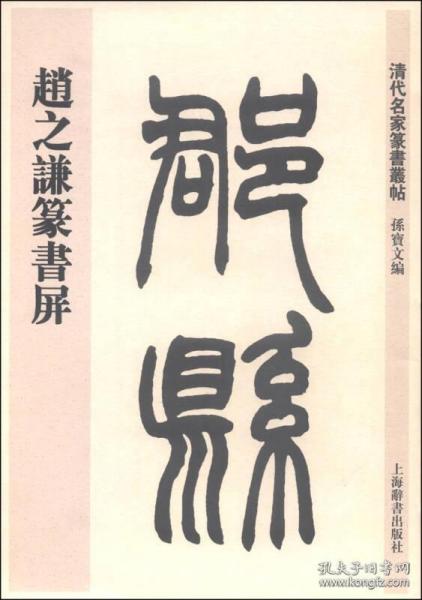 清代名家篆書叢帖
孫寶文編
上海辭書出版社
郡縣
趙之謙篆書屏
孔夫子旧书网
www.kongfz.com